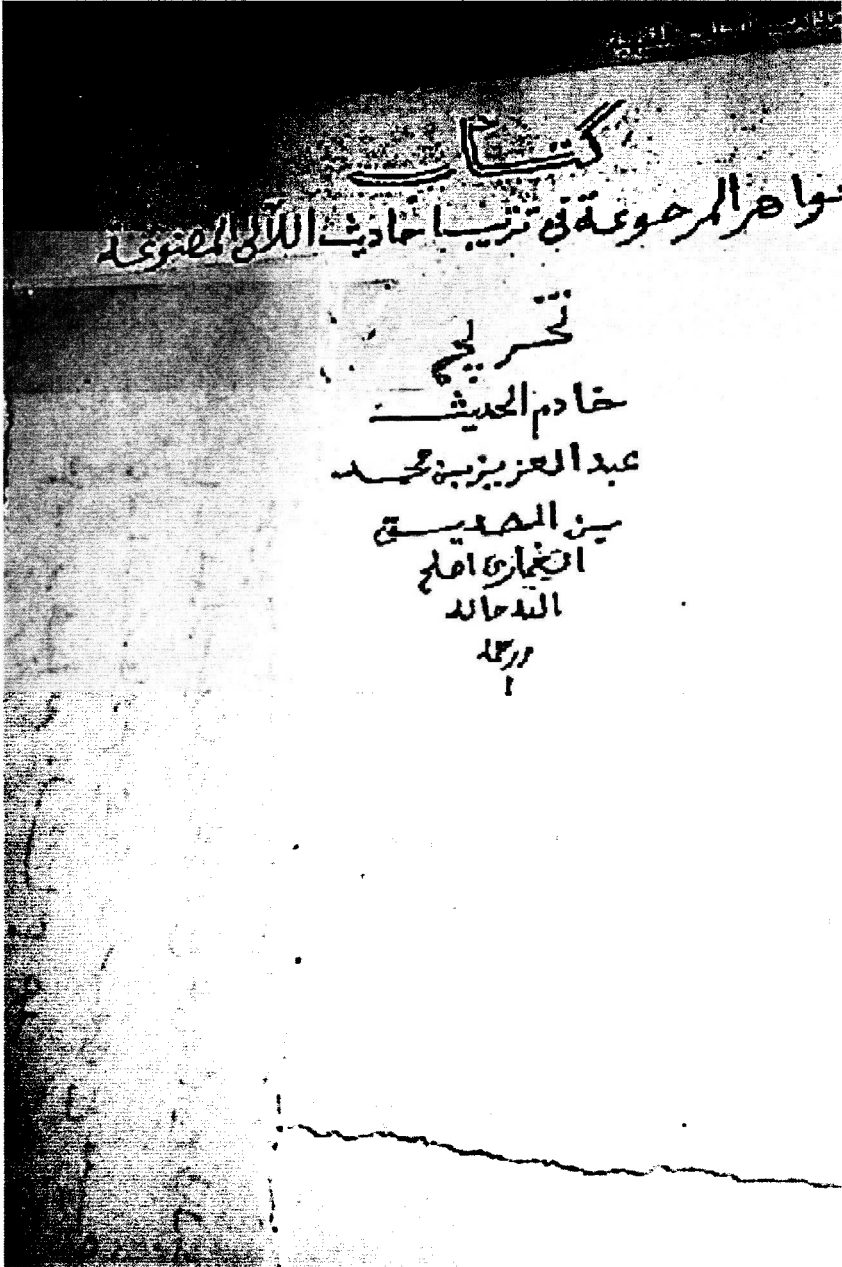 كتاب
واهر المرصوعة في ترتيب احاديث اللآلى المصنوعة
تخريج
خادم الحديث
عبد العزيز بن محمد
بن الصديق
الغمارى اصلح
الله حاله
ورحمه
ا